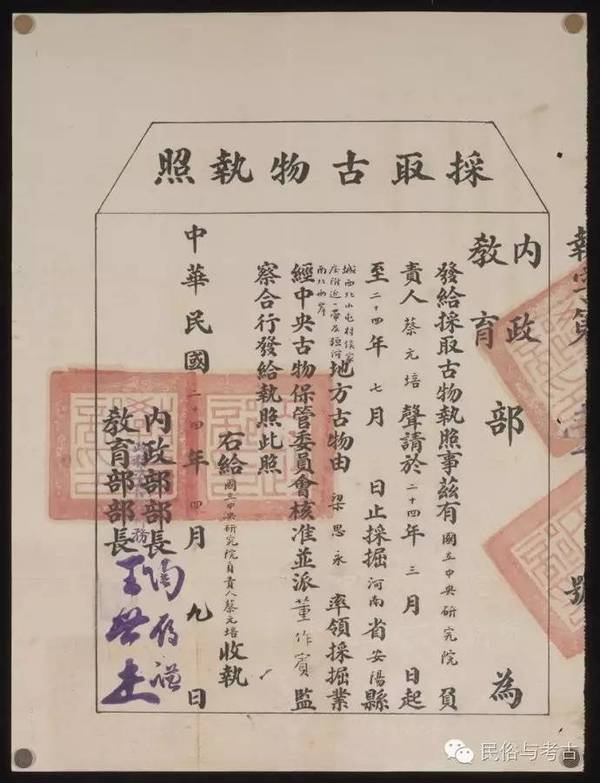 採取古物執照
第
號
內政
教育
部 為
發給採取古物執照事茲有國立中央研究院負
責人蔡元培聲請於二十四年三月 日起
至二十四年七月 日止採掘河南省安陽縣
城西北小屯村侯家
莊附近一帶及洹河
南北兩岸
地方古物由梁思永率領採掘業
經中央古物保管委員會核准並派董作賓監
察合行發給執照此照
右給國立中央研究院負責人蔡元培收執
內政部部長陶履謙
教育部部長王世杰
中華民國二十四年四月九日
民俗与考古